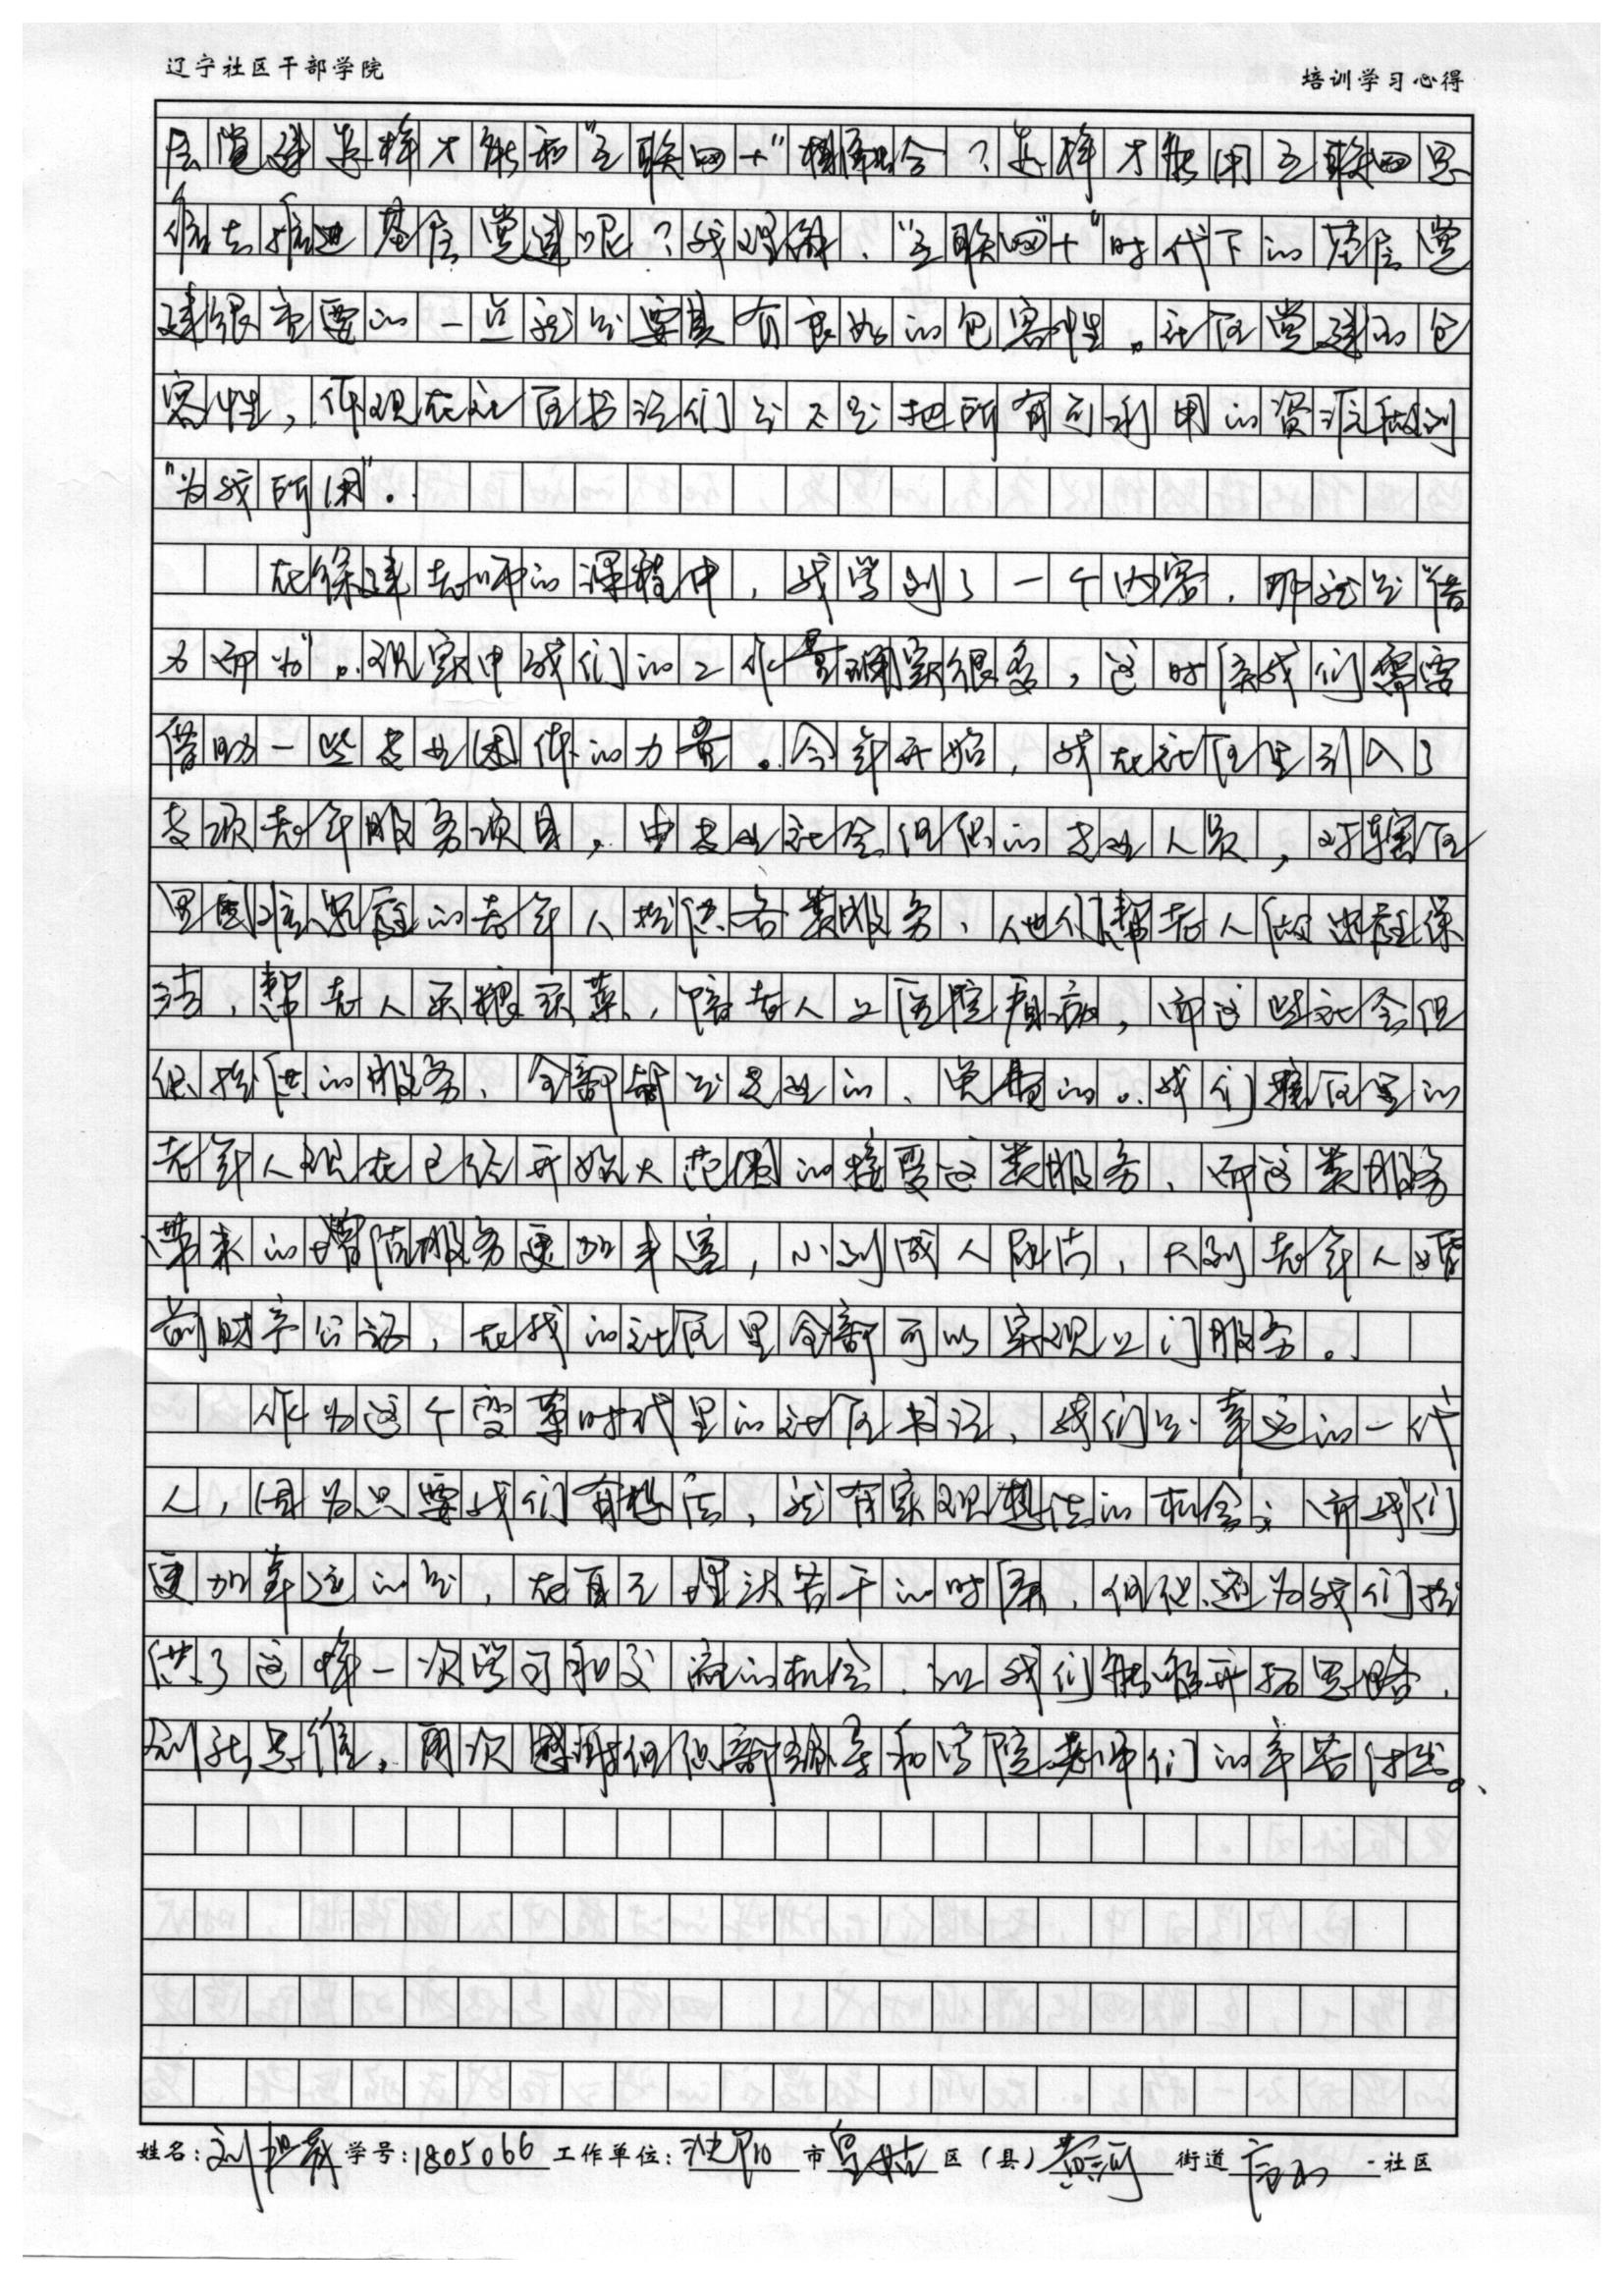 辽宁社区干部学院
培训学习心得
层党建怎样才能和“互联网+”相融合？怎样才能用互联网思
维去推进基层党建呢？我理解，“互联网+”时代下的基层党
建很重要的一点就是要具有良好的包容性。社区党建的包
容性，体现在社区书记们是不是把所有可利用的资源做到
“为我所用”。
在 建老师的课程中，我学到了一个内容，那就是“借
力而为”。现实中我们的工作量确实很多，这时候我们需要
借助一些专业团体的力量。今年开始，我在社区里引入了
专项老年服务项目，由专业社会组织的专业人员，对辖区
里困难家庭的老年人提供各类服务，他们帮老人做家庭保
洁，帮老人买粮买菜，陪老人上医院看病，而这些社会组
织提供的服务，全部都是专业的、免费的。我们辖区里的
老年人现在已经开始大范围的接受这类服务，而这类服务
带来的 服务更加丰富，小到成人 ，大到老年人婚
前财产公证，在我的社区里全部可以实现上门服务。
作为这个变革时代里的社区书记，我们是幸运的一代
人，因为只要我们有想法，就有实现想法的机会；而我们
更加幸运的是，在自己埋头苦干的时候，组织还为我们提
供了这样一次学习和交流的机会，让我们能够开拓思路，
创新思维，再次感谢组织部领导和学院老师们的辛苦付出。
姓名：刘 学号：1805066 工作单位：沈阳 市 皇姑 区（县） 黄河 街道 社区